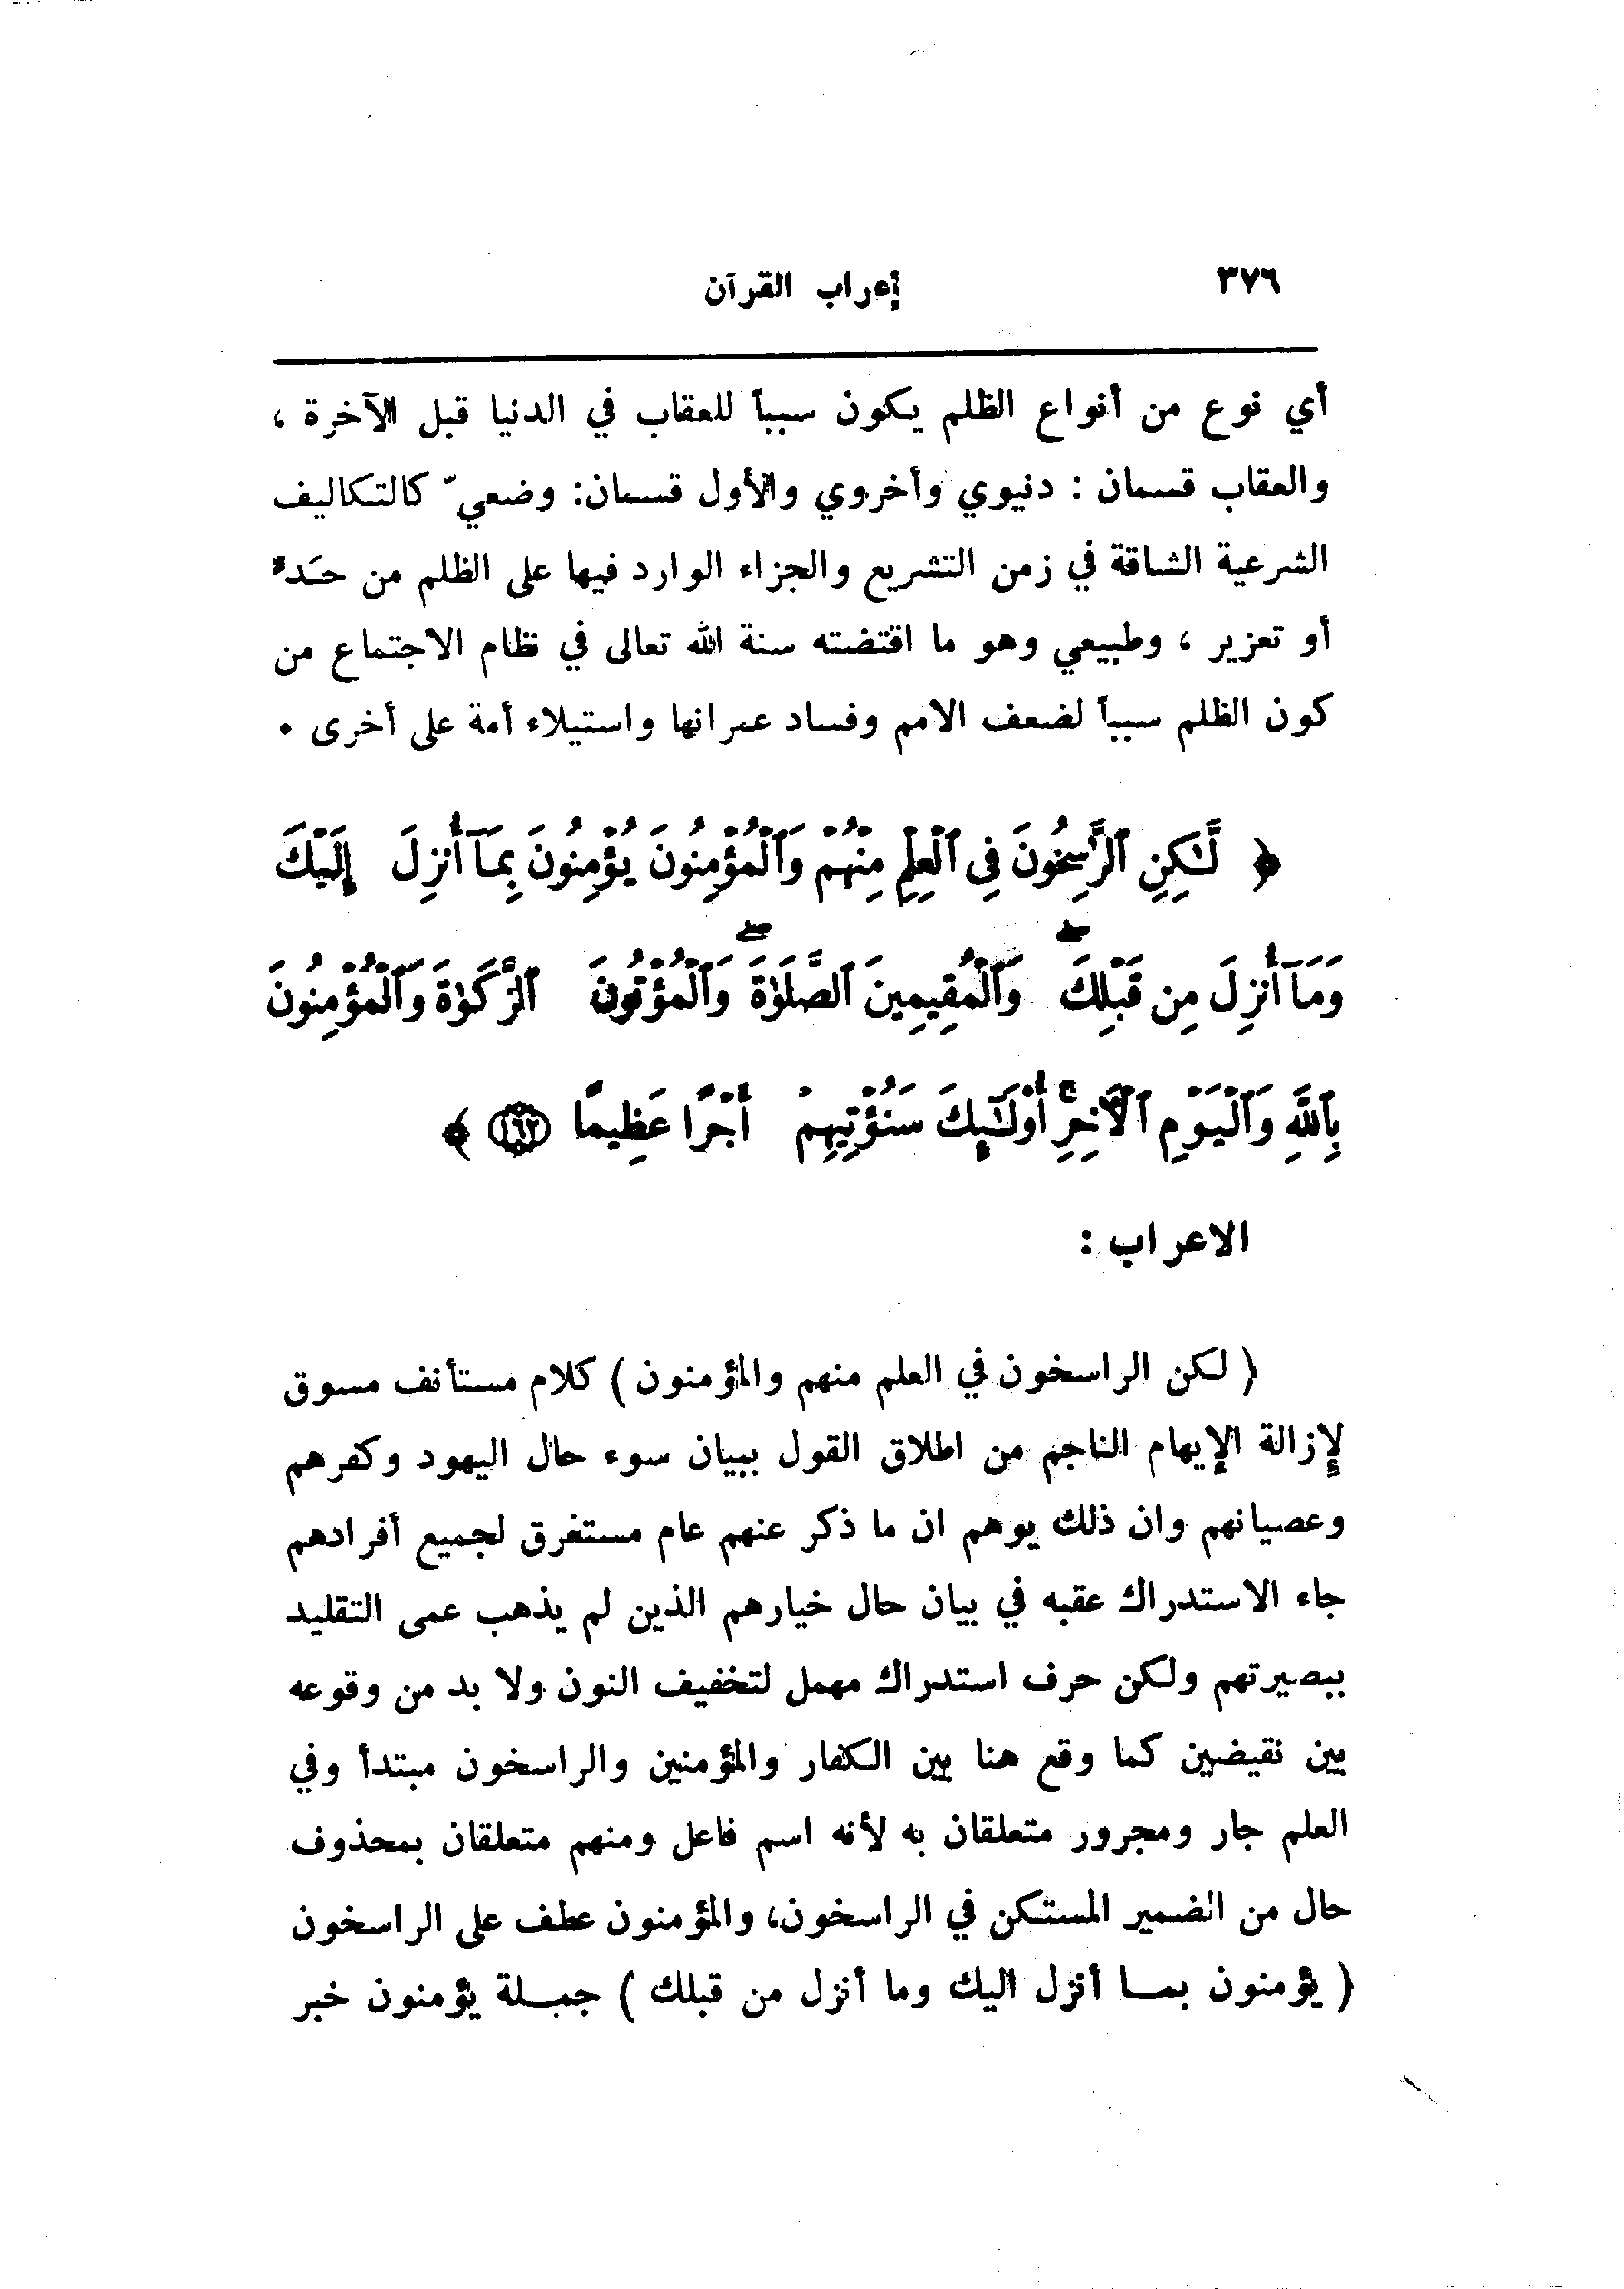 ٣٧٦ إعراب القرآن
أي نوع من أنواع الظلم يكون سبباً للعقاب في الدنيا قبل الآخرة ،
والعقاب قسمان : دنيوي وأخروي والأول قسمان: وضعيّ كالتكاليف
الشرعية الشاقة في زمن التشريع والجزاء الوارد فيها على الظلم من حَدٌ
أو تعزير ، وطبيعي وهو ما اقتضته سنة الله تعالى في نظام الاجتماع من
كون الظلم سبباً لضعف الامم وفساد عمرانها واستيلاء أمة على أخرى .
﴿ لَّـٰكِنِ ٱلرَّٰسِخُونَ فِى ٱلْعِلْمِ مِنْهُمْ وَٱلْمُؤْمِنُونَ يُؤْمِنُونَ بِمَآ أُنزِلَ إِلَيْكَ
وَمَآ أُنزِلَ مِن قَبْلِكَۖ وَٱلْمُقِيمِينَ ٱلصَّلَوٰةَۖ وَٱلْمُؤْتُونَ ٱلزَّكَوٰةَ وَٱلْمُؤْمِنُونَ
بِٱللَّهِ وَٱلْيَوْمِ ٱلْأٓخِرِۚ أُوْلَـٰٓئِكَ سَنُؤْتِيهِمْ أَجْرًا عَظِيمًا ١٦٢ ﴾
الاعراب :
( لكن الراسخون في العلم منهم والمؤمنون ) كلام مستأنف مسوق
لإزالة الإيهام الناجم من اطلاق القول ببيان سوء حال اليهود وكفرهم
وعصيانهم وان ذلك يوهم ان ما ذكر عنهم عام مستغرق لجميع أفرادهم
جاء الاستدراك عقبه في بيان حال خيارهم الذين لم يذهب عمى التقليد
ببصيرتهم ولكن حرف استدراك مهمل لتخفيف النون ولا بد من وقوعه
بين نقيضين كما وقع هنا بين الكفار والمؤمنين والراسخون مبتدأ وفي
العلم جار ومجرور متعلقان به لأنه اسم فاعل ومنهم متعلقان بمحذوف
حال من الضمير المستكن في الراسخون، والمؤمنون عطف على الراسخون
( يؤمنون بمـا أنزل اليك وما أنزل من قبلك ) جمـلة يؤمنون خبر